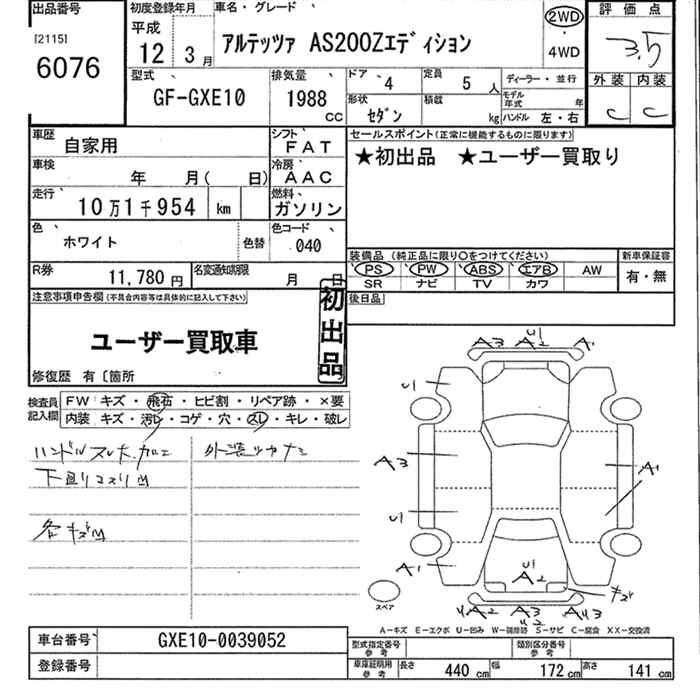 出品番号
[2115]
6076
初度登録年月
平成
12 3月
車名・グレード
アルテッツァ AS200Zエディション
2WD
・
4WD
評価点
3.5
外装 内装
C C
型式
GF-GXE10
排気量
1988
CC
ドア 4
定員 5 人
形状
セダン
積載
kg
ディーラー・並行
モデル年式 年
ハンドル 左・右
車歴
自家用
シフト
FAT
車検
年 月( 日)
冷房
AAC
走行
10万1千954 km
燃料
ガソリン
色
ホワイト
色替
色コード
040
R券
11,780円
名変通知期限
月 日
セールスポイント(正常に機能するものに限ります)
★初出品 ★ユーザー買取り
装備品(純正品に限り○をつけてください)
新車保証書
PS PW ABS エアB AW
有・無
SR ナビ TV カワ
後日品
注意事項申告欄(不具合内容等は具体的に記入して下さい)
ユーザー買取車
初出品
修復歴 有〔箇所
検査員記入欄
FW キズ・飛石・ヒビ割・リペア跡・×要
内装 キズ・汚レ・コゲ・穴・スレ・キレ・破レ
ハンドルスレ大
下回リコスリ
各キズ
U1
A3 A2 A1
U1
A3
A1
U1
A1
U1
A2
キズ
スペア
A2 A3
U2
A-キズ E-エクボ U-凹み W-補修跡 S-サビ C-腐食 XX-交換済
車台番号
GXE10-0039052
登録番号
型式指定番号
参考
類別区分番号
参考
車庫証明用
参考
長さ 440 cm
幅 172 cm
高さ 141 cm